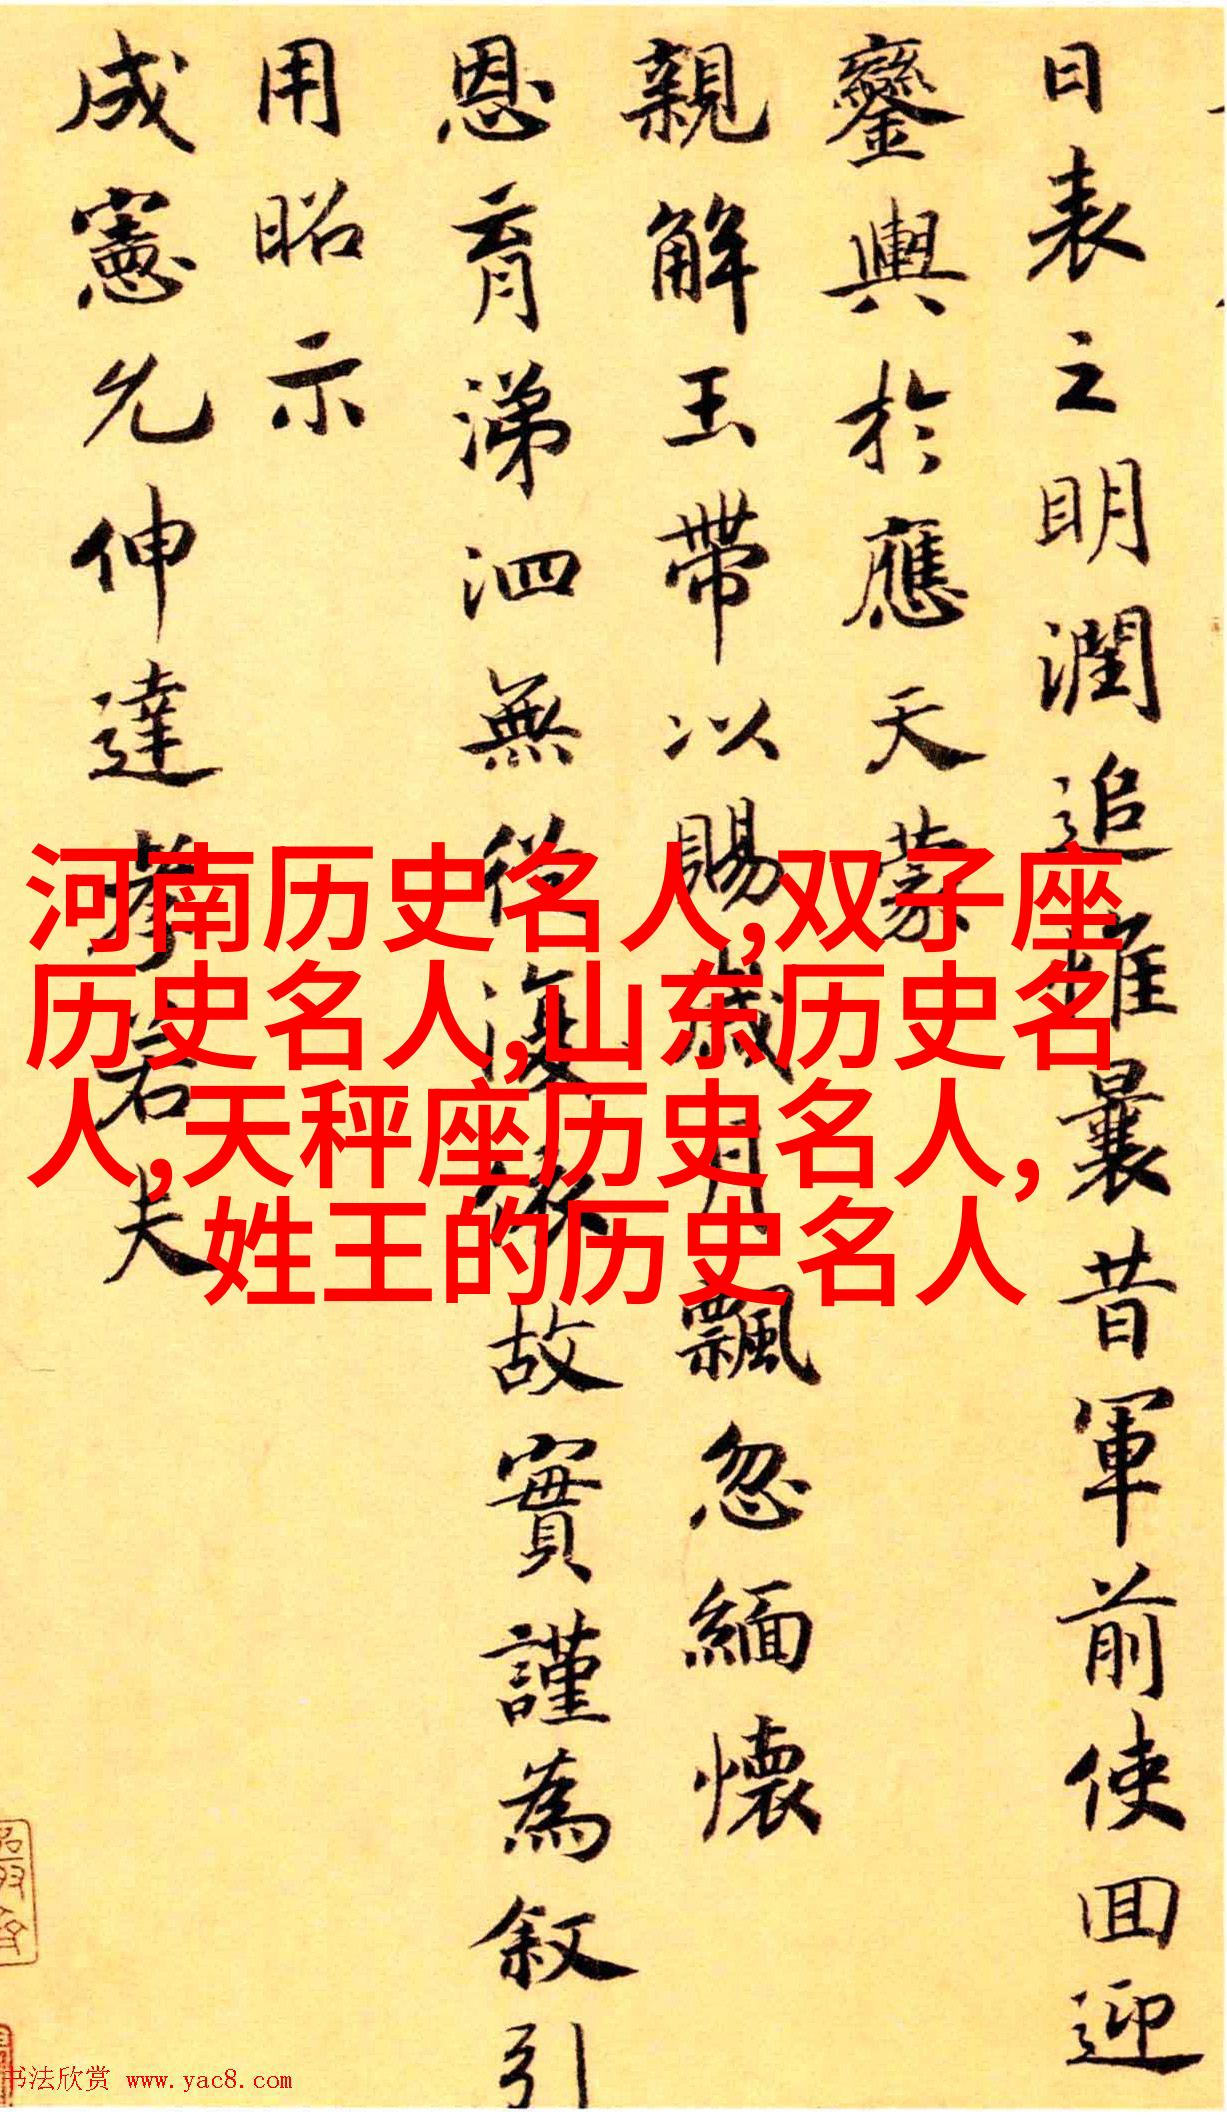 日表之明潤追惟曩昔軍前使囬迎
鑾輿於應天蒙
親解玉帶以賜歲月飄忽緬懷
恩育涕泗無從復故實謹為叙引
用昭示
成憲允伸達孝若夫
河南历史名人,双子座
历史名人,山东历史名
人,天秤座历史名人,
姓王的历史名人
书法欣赏 www.yac8.com